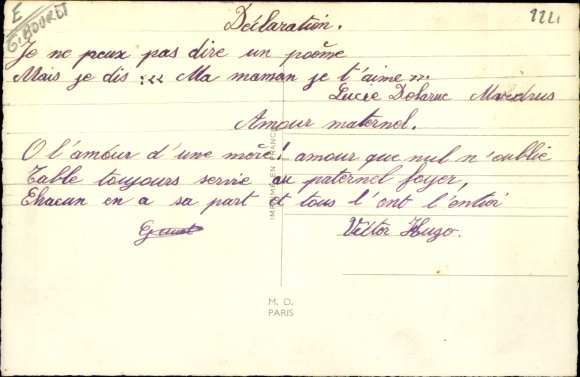 E
G. BOURET
1221
Déclaration.
Je ne peux pas dire un poême
Mais je dis : « Ma maman je t'aime ».
Lucie Delarue Mardrus
Amour maternel.
O l'amour d'une mère! amour que nul n'oublie
Table toujours servie au paternel foyer,
Chacun en a sa part et tous l'ont l'entier
Victor Hugo.
IMPRIMÉ EN FRANCE
M. D.
PARIS